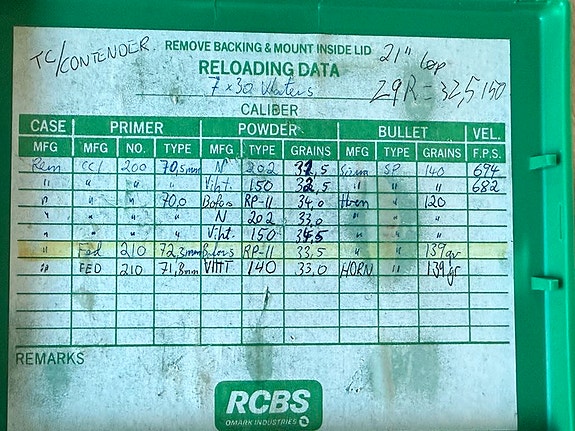 TC/CONTENDER
REMOVE BACKING & MOUNT INSIDE LID
21" løp
RELOADING DATA
7 x 30 Waters
CALIBER
CASE PRIMER POWDER BULLET VEL.
MFG MFG NO. TYPE MFG TYPE GRAINS MFG TYPE GRAINS F.P.S.
Rem CCI 200 70,5mm N 202 5 SP 140 694
" " " Viht. 150 32,5 " " " 682
" " " 70,0 Bofors RP-11 34,0 Horn " 120
" " " N 202 33,0 "
" " " Viht. 150 5 "
" Fed 210 72,3mm Bofors RP-11 33,5 " 139gr
" FED 210 71,8mm VIHT 140 33,0 HORN " 139gr
REMARKS
RCBS
OMARK INDUSTRIES